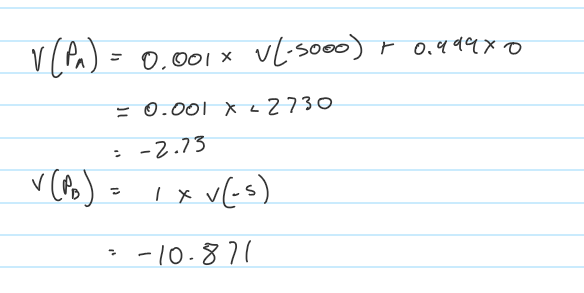 V(P_A) = 0.001 × v(-5000) + 0.999 × 0
= 0.001 × -2730
= -2.73
V(P_B) = 1 × v(-5)
= -10.871